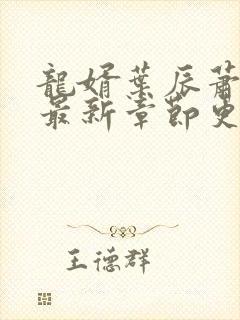 龍婿葉辰蕭
最新章節更
王德群